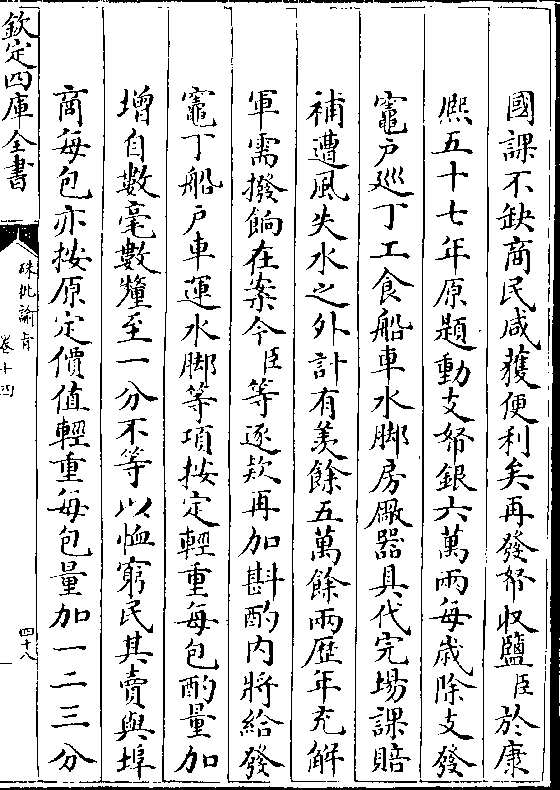 國課不缺商民咸獲便利矣再發帑收鹽臣於康
熈五十七年原題動支帑銀六萬兩每歲除支發
竈户廵丁工食船車水脚房厰器具代完場課賠
補遭風失水之外計有羨餘五萬餘兩歴年充解
軍需撥餉在案今臣等逐欵再加斟酌内將給發
竈丁船户車運水脚等項按定輕重每包酌量加
增自數毫數釐至一分不等以恤窮民其賣與埠
商每包亦按原定價值輕重每包量加一二三分
欽定四庫全書
硃批諭旨
卷十四
四十八